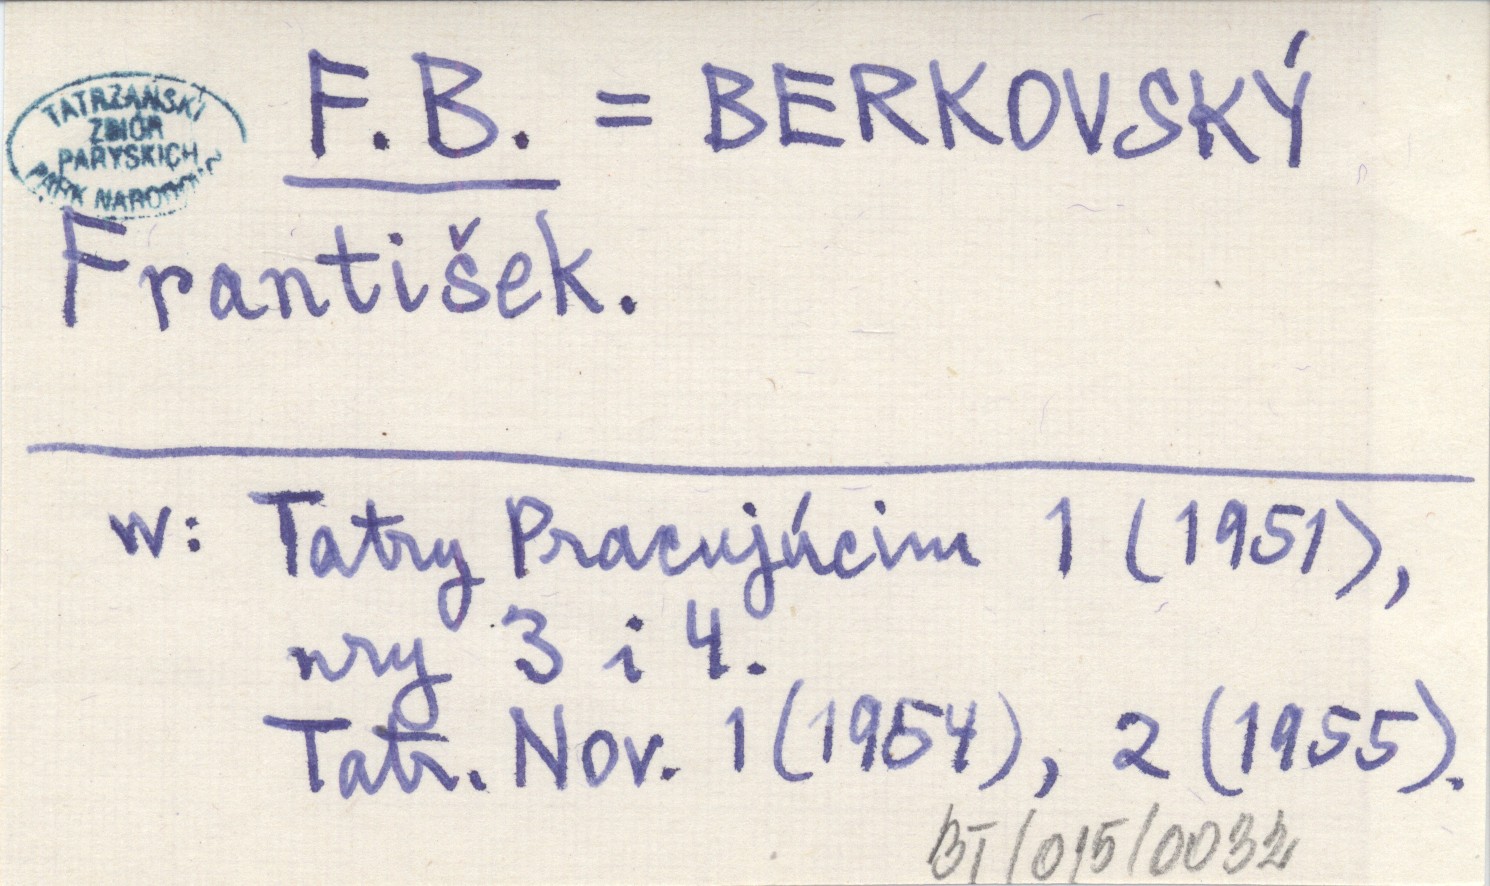 TATRZAŃSKI
ZBIÓR
PARYSKICH
PARK NARODOWY
F.B. = BERKOVSKÝ
František.
w: Tatry Pracujúcim 1 (1951),
nry 3 i 4.
Tatr. Nov. 1 (1954), 2 (1955).
BT/015/0032